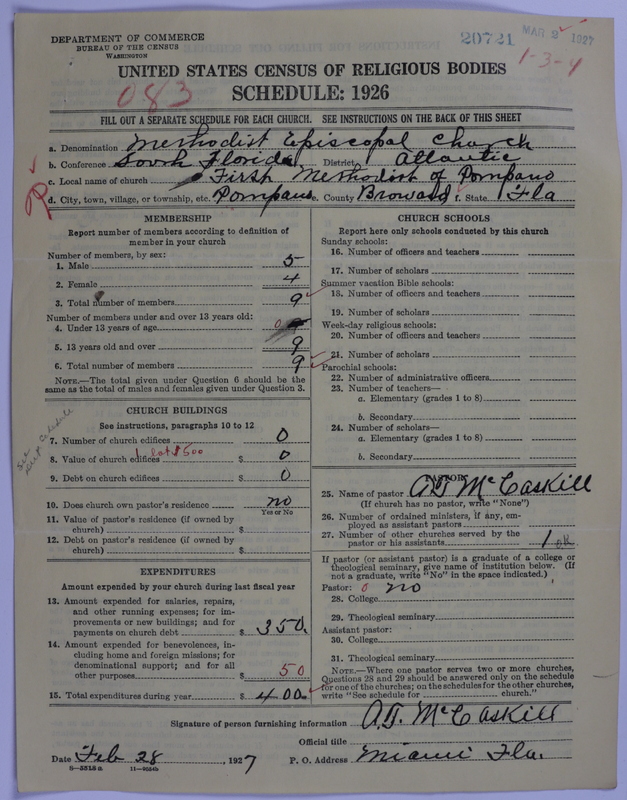 DEPARTMENT OF COMMERCE
BUREAU OF THE CENSUS
WASHINGTON
20721
MAR 2 1927
1-3-4
UNITED STATES CENSUS OF RELIGIOUS BODIES
083
SCHEDULE: 1926
FILL OUT A SEPARATE SCHEDULE FOR EACH CHURCH. SEE INSTRUCTIONS ON THE BACK OF THIS SHEET
a. Denomination Methodist Episcopal Church
b. Conference South Florida District Atlantic
c. Local name of church First Methodist of Pompano
R
d. City, town, village, or township, etc. Pompano e. County Broward f. State Fla
MEMBERSHIP
Report number of members according to definition of
member in your church
Number of members, by sex:
1. Male 5
2. Female 4
3. Total number of members 9
Number of members under and over 13 years old:
4. Under 13 years of age 0
5. 13 years old and over 9
6. Total number of members 9
NOTE.—The total given under Question 6 should be the
same as the total of males and females given under Question 3.
CHURCH BUILDINGS
See instructions, paragraphs 10 to 12
7. Number of church edifices 0
1 lot $500
8. Value of church edifices $ 0
9. Debt on church edifices $ 0
10. Does church own pastor's residence no
Yes or No
11. Value of pastor's residence (if owned by
church) $
12. Debt on pastor's residence (if owned by
church) $
EXPENDITURES
Amount expended by your church during last fiscal year
13. Amount expended for salaries, repairs,
and other running expenses; for im-
provements or new buildings; and for
payments on church debt $ 350.
14. Amount expended for benevolences, in-
cluding home and foreign missions; for
denominational support; and for all
other purposes $ 50
15. Total expenditures during year $ 400.
CHURCH SCHOOLS
Report here only schools conducted by this church
Sunday schools:
16. Number of officers and teachers
17. Number of scholars
Summer vacation Bible schools:
18. Number of officers and teachers
19. Number of scholars
Week-day religious schools:
20. Number of officers and teachers
21. Number of scholars
Parochial schools:
22. Number of administrative officers
23. Number of teachers—
a. Elementary (grades 1 to 8)
b. Secondary
24. Number of scholars—
a. Elementary (grades 1 to 8)
b. Secondary
PASTOR
25. Name of pastor A. T. McCaskill
(If church has no pastor, write "None")
26. Number of ordained ministers, if any, em-
ployed as assistant pastors
27. Number of other churches served by the
pastor or his assistants 1 OK
If pastor (or assistant pastor) is a graduate of a college or
theological seminary, give name of institution below. (If
not a graduate, write "No" in the space indicated.)
Pastor: 0 no
28. College
29. Theological seminary
Assistant pastor:
30. College
31. Theological seminary
NOTE.—Where one pastor serves two or more churches,
Questions 28 and 29 should be answered only on the schedule
for one of the churches; on the schedules for the other churches,
write "See schedule for church."
Signature of person furnishing information A. T. McCaskill
Official title
Date Feb 28, 1927 P. O. Address Miami Fla.
8—5518 a 11—9554b